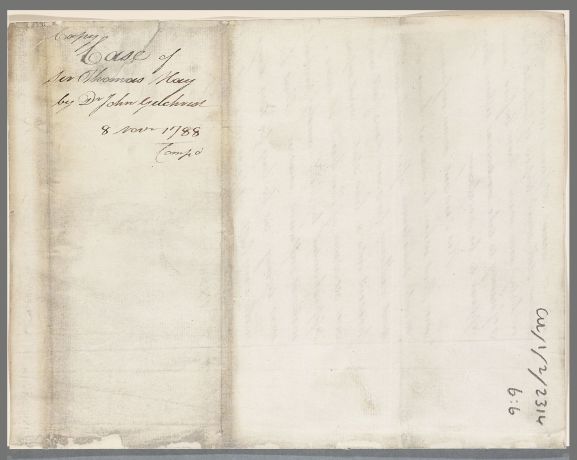 Copy
Case of
Sir Thomas Hay
by Dr John Gilchrist
8 Novr 1788
Comp'd
Cul/1/2/2314
6:6